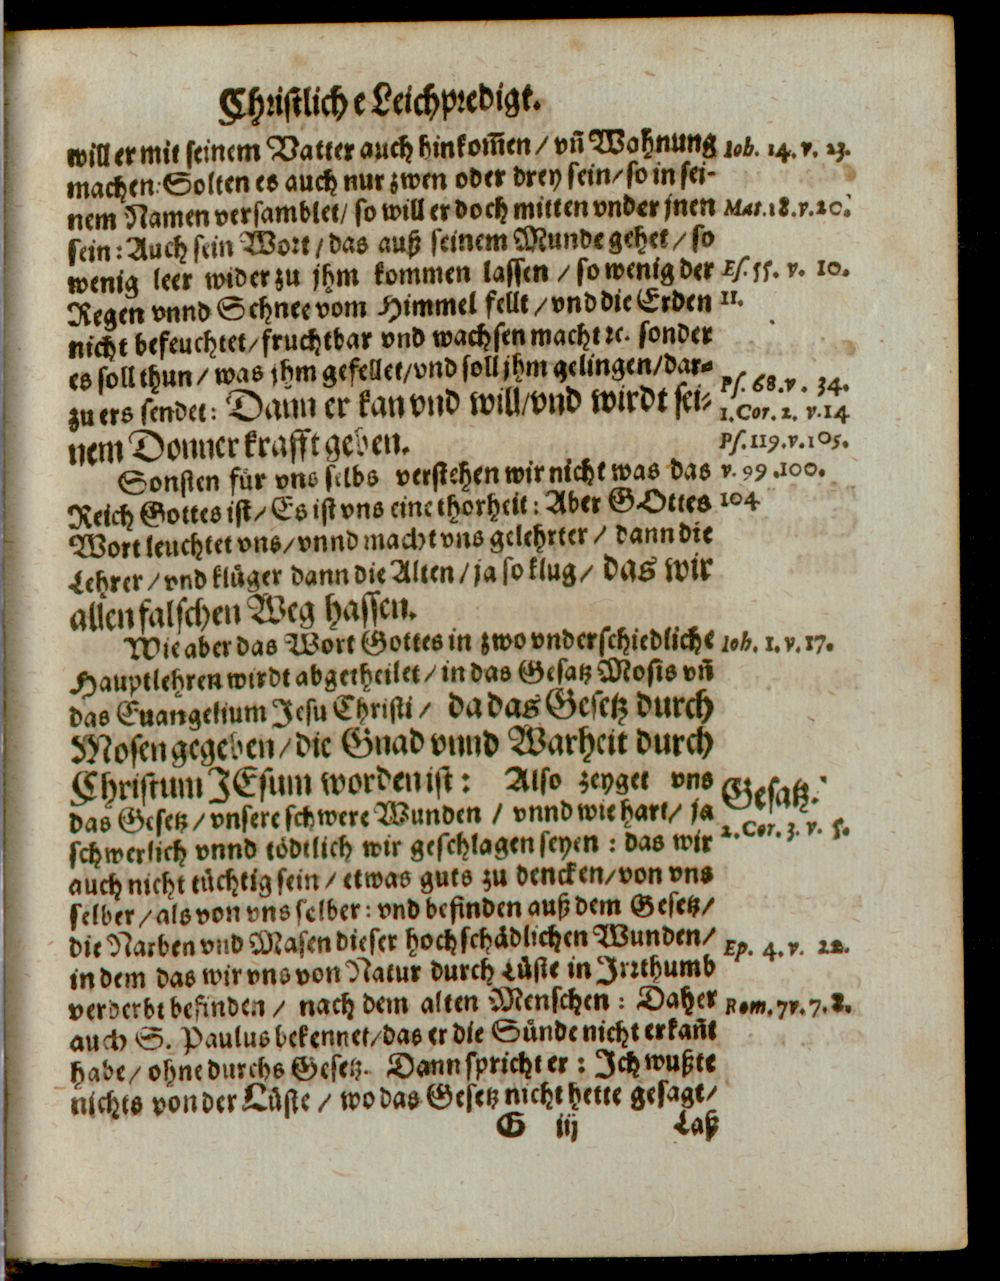 Christliche Leichpredigt.
will er mit seinem Vatter auch hinkom̃en / vn̄ Wohnung Ioh. 14. v. 23.
machen: Solten es auch nur zwen oder drey sein / so in sei-
nem Namen versamblet / so will er doch mitten vnder jnen Mat. 18. v. 20.
sein: Auch sein Wort / das auß seinem Munde gehet / so
wenig leer wider zu jhm kommen lassen / so wenig der Es. 55. v. 10.
Regen vnnd Schnee vom Himmel fellt / vnd die Erden 11.
nicht befeuchtet / fruchtbar vnd wachsen macht ꝛc. sonder
es soll thun / was jhm gefellet / vnd soll jhm gelingen / dar-
zu ers sendet: Dann er kan vnd will / vnd wirdt sei- Ps. 68. v. 34.
1. Cor. 2. v. 14
nem Donner krafft geben. Ps. 119. v. 105.
Sonsten für vns selbs verstehen wir nicht was das v. 99. 100.
Reich Gottes ist / Es ist vns eine thorheit: Aber GOttes 104
Wort leuchtet vns / vnnd macht vns gelehrter / dann die
Lehrer / vnd klüger dann die Alten / ja so klug / das wir
allen falschen Weg hassen.
Wie aber das Wort Gottes in zwo vnderschiedliche Ioh. 1. v. 17.
Hauptlehren wirdt abgetheilet / in das Gesatz Mosis vn̄
das Euangelium Jesu Christi / da das Gesetz durch
Mosen gegeben / die Gnad vnnd Warheit durch
Christum JEsum worden ist: Also zeyget vns Gesatz.
das Gesetz / vnsere schwere Wunden / vnnd wie hart / ja
schwerlich vnnd tödtlich wir geschlagen seyen: das wir 2. Cor. 3. v. 5.
auch nicht tüchtig sein / etwas guts zu dencken / von vns
selber / als von vns selber: vnd befinden auß dem Gesetz /
die Narben vnd Masen dieser hochschädlichen Wunden / Ep. 4. v. 22.
in dem das wir vns von Natur durch Lüste in Jrrthumb
verderbt befinden / nach dem alten Menschen: Daher Rom. 7v. 7. 8.
auch S. Paulus bekennet / das er die Sünde nicht erkañt
habe / ohne durchs Gesetz. Dann spricht er: Ich wußte
nichts von der Lüste / wo das Gesetz nicht hette gesagt /
G iij Laß